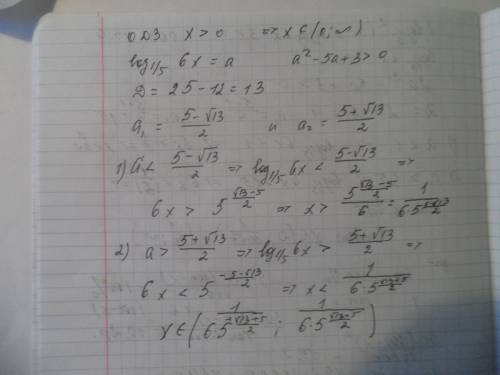 ОДЗ x > 0 => x ∈ (0; ∞)
log_{1/5} 6x = a a² - 5a + 3 > 0
D = 25 - 12 = 13
a₁ = (5 - √13)/2 и a₂ = (5 + √13)/2
1) a < (5 - √13)/2 => log_{1/5} 6x < (5 - √13)/2 =>
6x > 5^{(√13 - 5)/2} => x > 5^{(√13 - 5)/2}/6 = 1/(6·5^{(5 - √13)/2})
2) a > (5 + √13)/2 => log_{1/5} 6x > (5 + √13)/2 =>
6x < 5^{(-5 - √13)/2} => x < 1/(6·5^{(√13 + 5)/2})
x ∈ (1/(6·5^{(√13 + 5)/2}); 1/(6·5^{(√13 - 5)/2}))